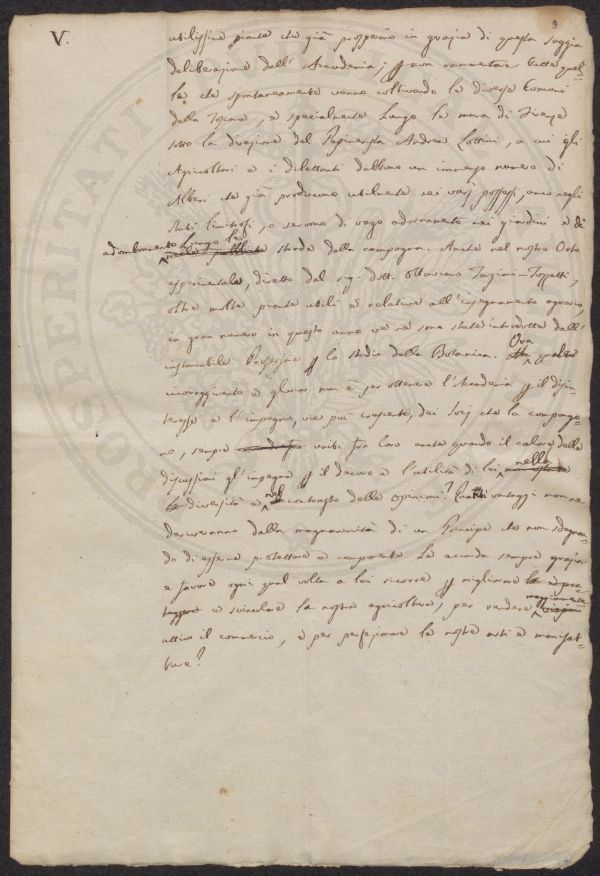 V.
9
utilissime piante che già prosperano in grazia di questa saggia
deliberazione dell' Accademia; p non rammentare tutte quel-
le che spontaneamente vanno coltivando le diverse Comuni
della Toscana, e specialmente Lungo le mura di Firenze
sotto la direzione del Pepinerista Andrea Lottini, a cui gli
Agricoltori e i dilettanti debbono un immenso numero di
Alberi che già producono utilmente nei varj possessi, anco negli
Stati limitrofi, o servono di vago adornamento nei giardini e di
adombramento lungo le strade della campagna. Anche nel nostro Orto
esperimentale, diretto dal sig. dott. Ottaviano Targioni-Tozzetti,
oltre molte piante utili e relative all'insegnamento agrario,
in gran numero in questo anno ve ne sono state introdotte dall'
instancabile Professore p lo studio della Botanica. Ora quale
incoraggimento e gloria non è per ottenere l'Accademia p il disin-
teresse e l'impegno, vie più crescente, dei Socj che la compongo-
no, sempre uniti fra loro anche quando il calore delle
discussioni gl'impegna p il decoro e l'utilità di lei nella
diversità e nel contrasto delle opinioni? Quanti vantaggi non ne
deriveranno dalla magnanimità di un Principe che non sdegnan-
do di esserne protettore e componente Le accorda sempre grazia
e favore ogni qual volta a lui ricorre p migliorare
e svincolare la nostra agricoltura, per rendere maggiormente
attivo il commercio, e per perfezionare le nostre arti e manifat-
ture?
PROSPERITATI